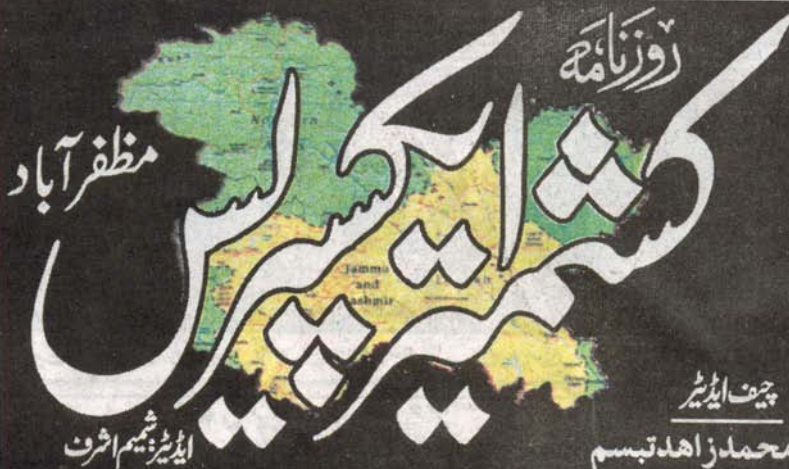 روزنامہ
کشمیر ایکسپریس
مظفر آباد
Jammu
and
Kashmir
چیف ایڈیٹر
محمد زاھد تبسم
ایڈیٹر: شمیم اشرف